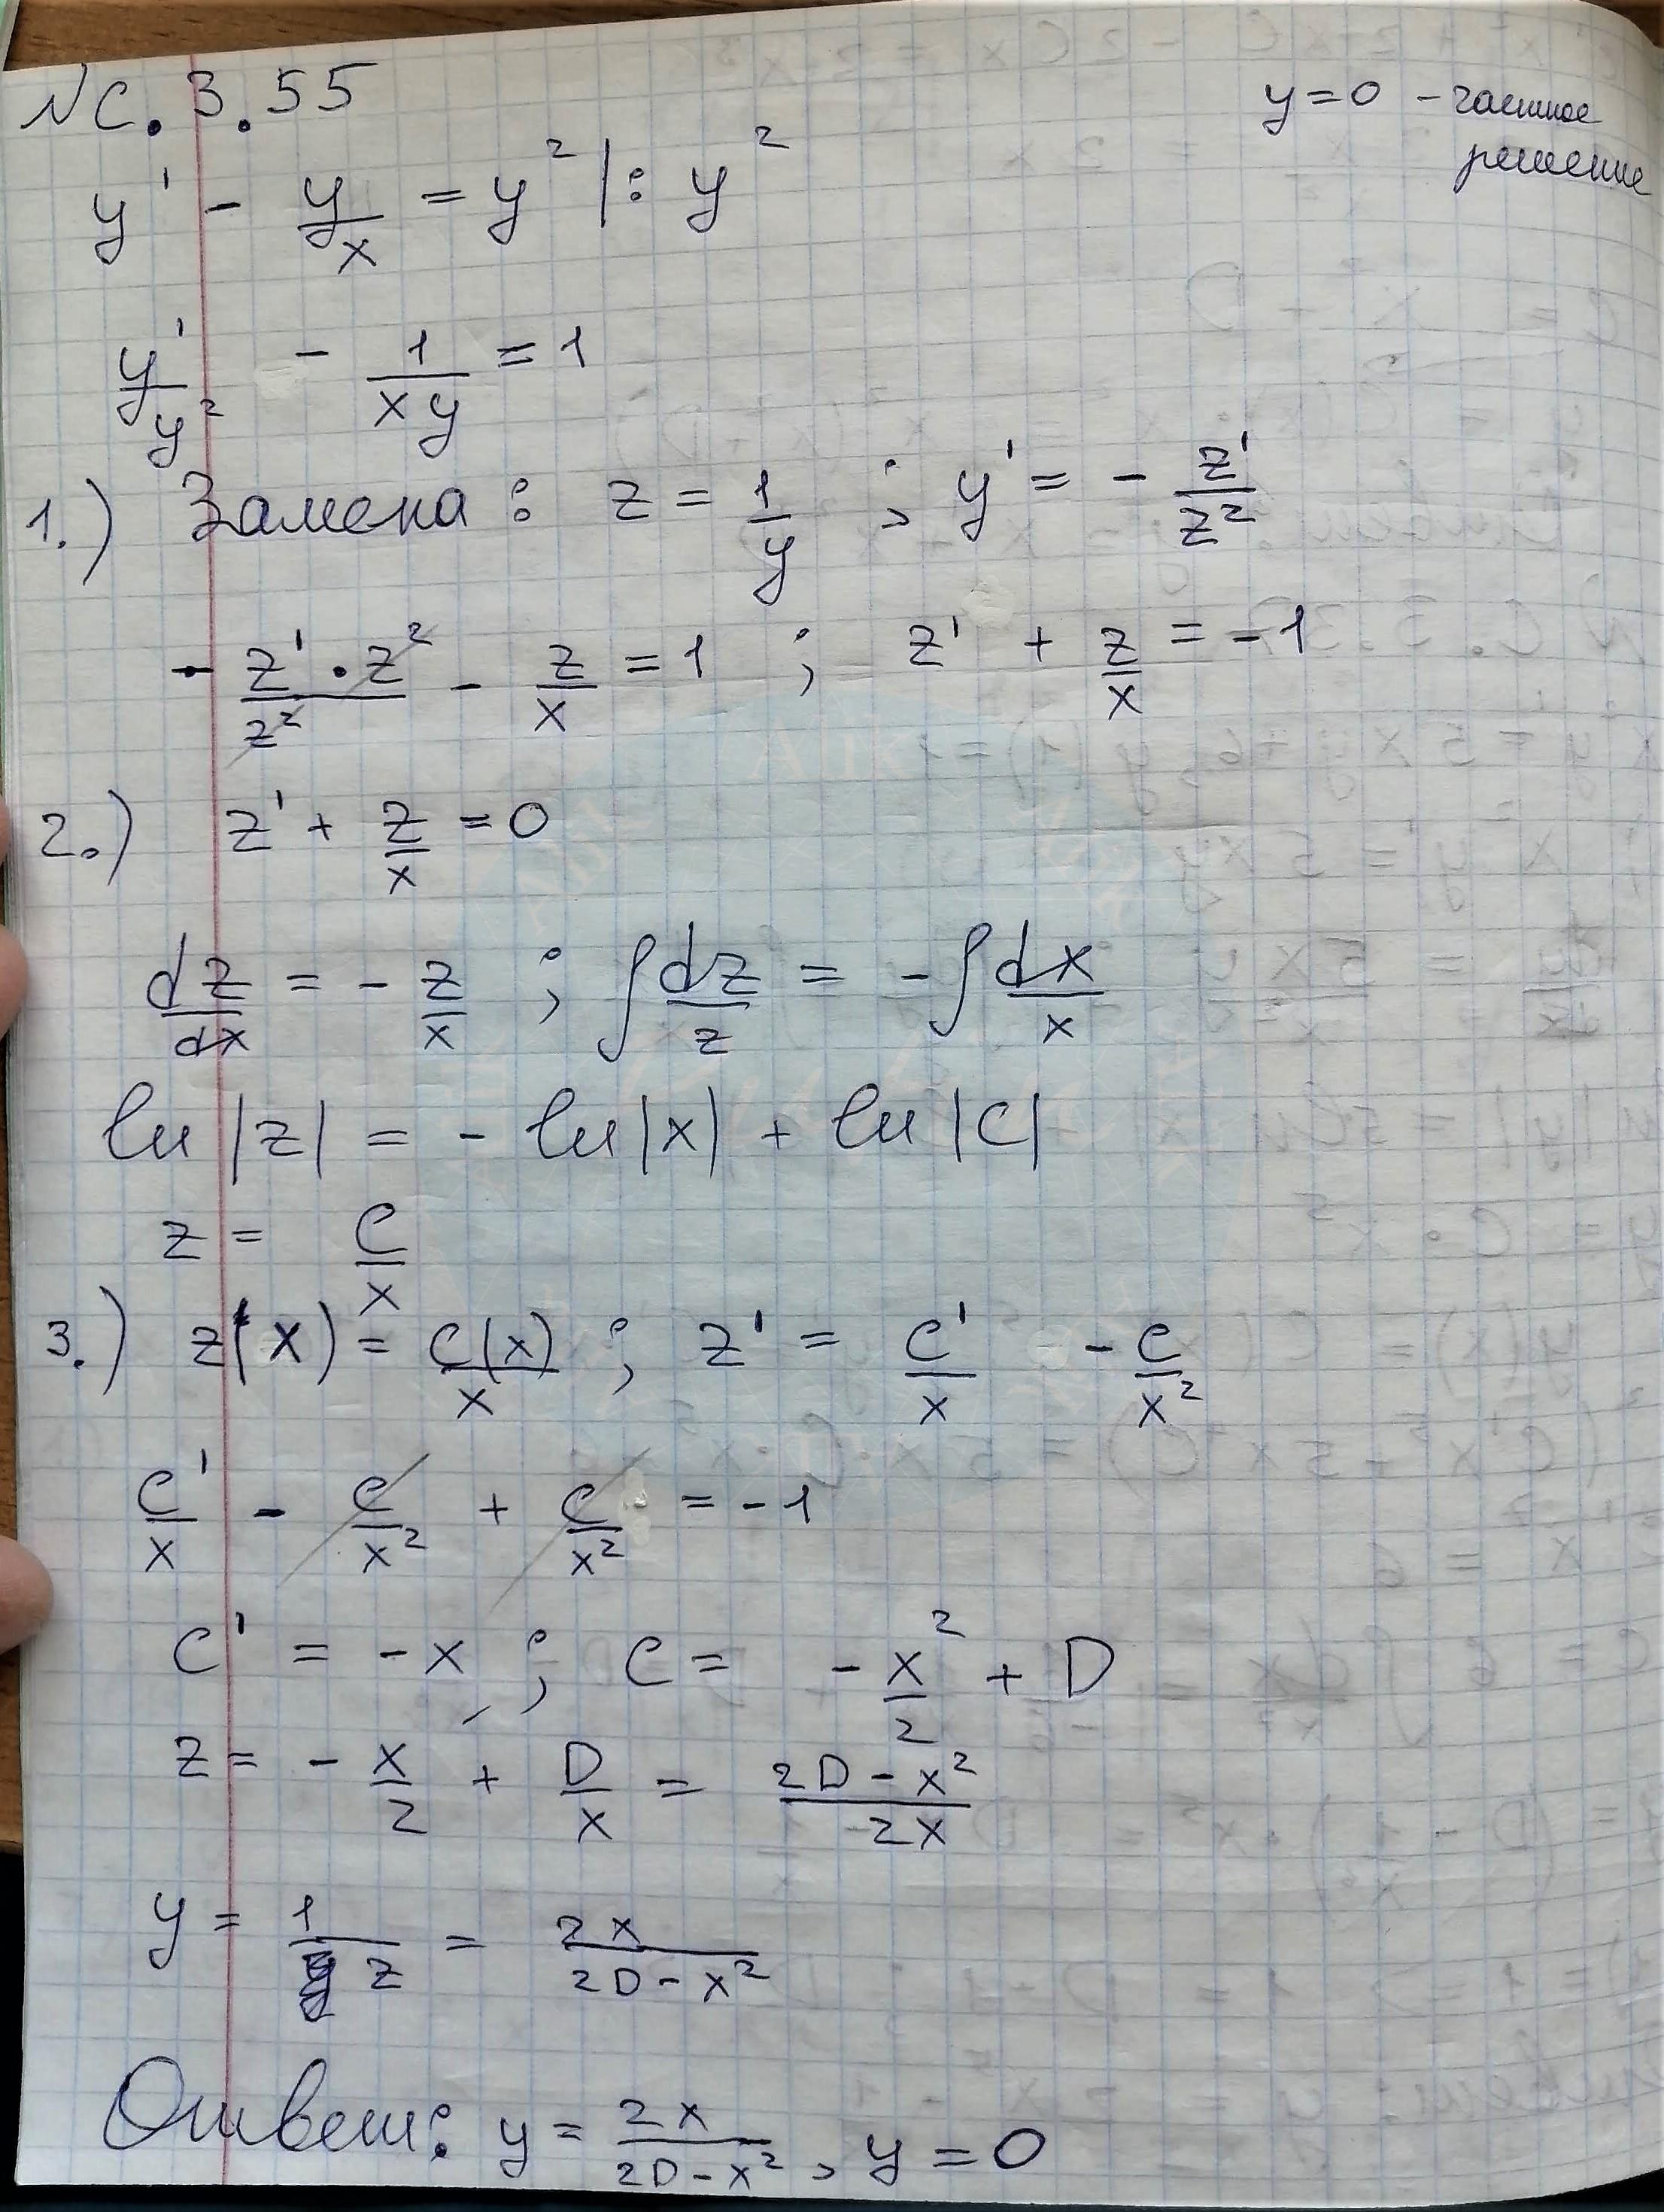 № С.3.55
y=0 - частное
решение
y' - y/x = y² |: y²
y'/y² - 1/(xy) = 1
1.) Замена: z = 1/y ; y' = - z'/z²
- z'·z²/z² - z/x = 1 ; z' + z/x = -1
2.) z' + z/x = 0
dz/dx = - z/x ; ∫dz/z = -∫dx/x
ln|z| = - ln|x| + ln|C|
z = C/x
3.) z(x) = C(x)/x ; z' = C'/x - C/x²
C'/x - C/x² + C/x² = -1
C' = -x ; C = - x²/2 + D
z = - x/2 + D/x = (2D - x²)/2x
y = 1/z = 2x/(2D - x²)
Ответ: y = 2x/(2D - x²) , y = 0